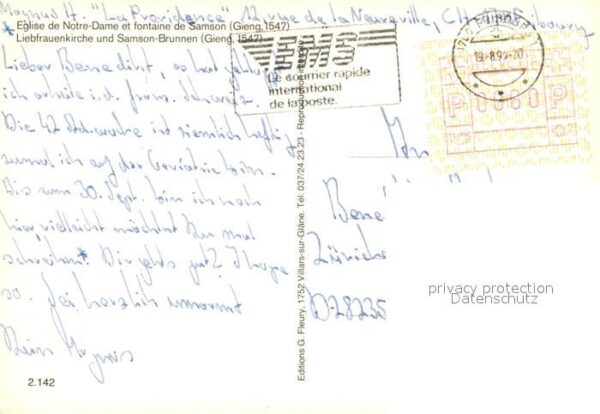 "La Providence" 12, rue de la Neuveville, CH
Eglise de Notre-Dame et fontaine de Samson (Gieng, 1547)
Liebfrauenkirche und Samson-Brunnen (Gieng, 1547)
Lieber Benedikt, es hat
ich arbeite i.d. franz. Schweiz.
Die 42 Std. woche ist ziemlich heftig
zumal ich auf der Geriatrie bin.
Bis zum 30. Sept. bin ich noch
hier, vielleicht möchtest Du mal
schreiben* Dir gehts gut? I hope
so. Sei herzlich umarmt
Dein
2.142
EMS
Le courrier rapide
international
de la poste.
Editions G. Fleury, 1752 Villars-sur-Glâne. Tél. 037/24.23.23 - Reproduction
P P
An
Bene
Zürich
D-28235
privacy protection
Datenschutz